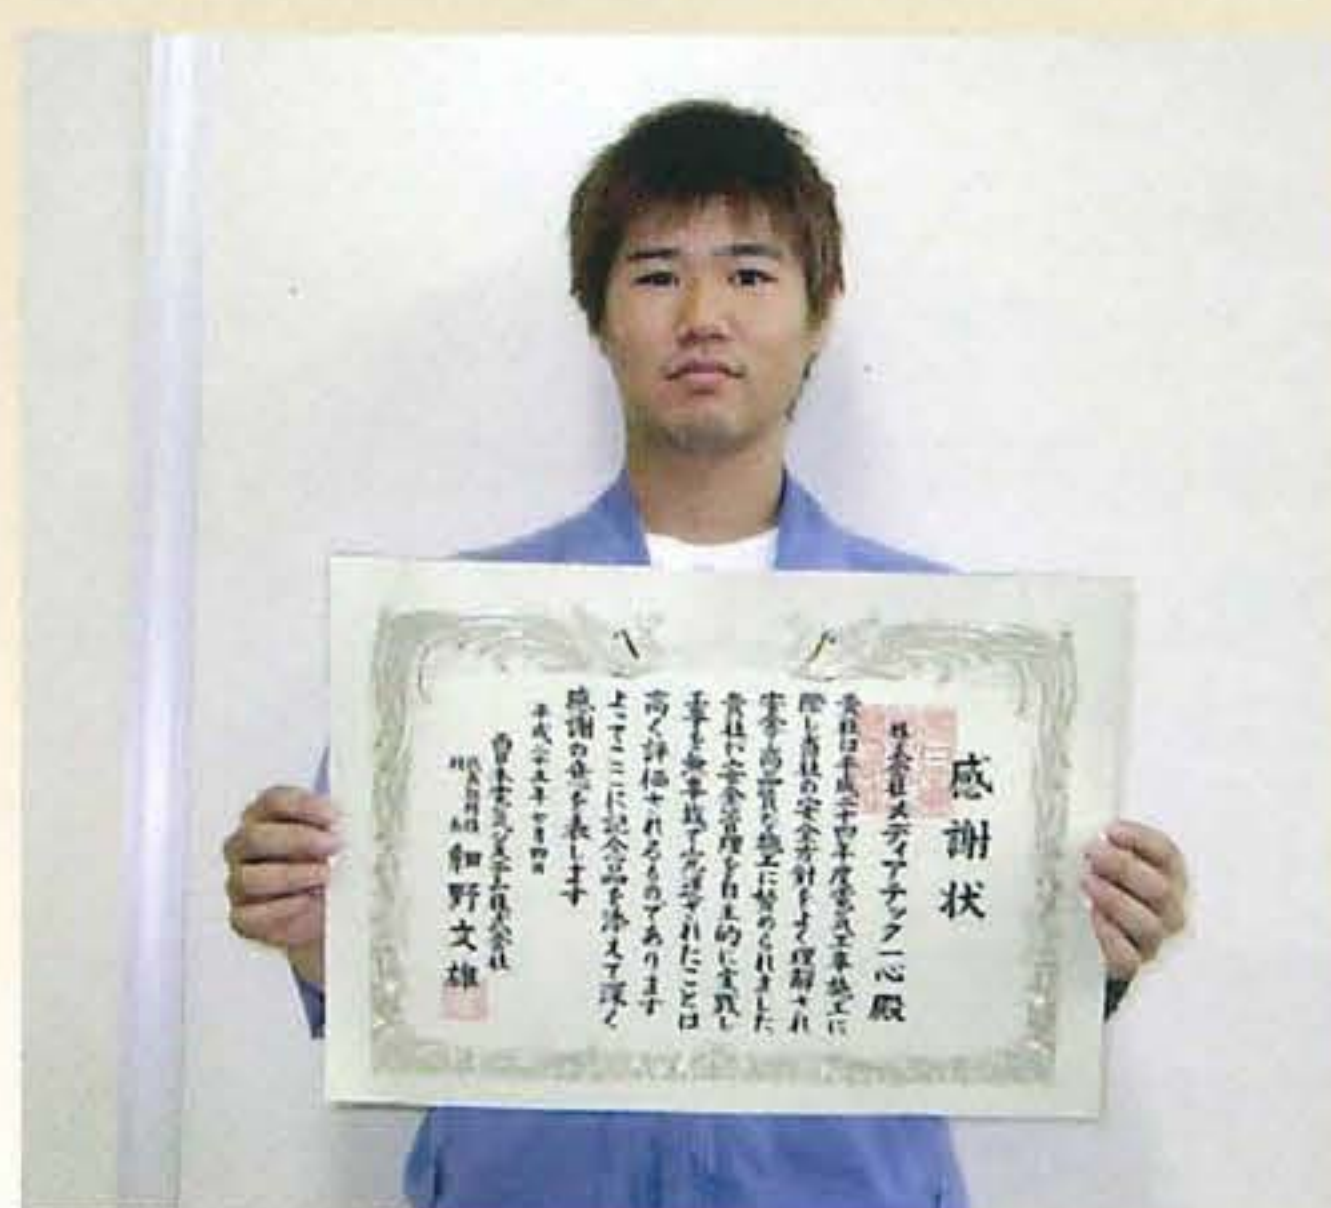 感謝状
株式会社メディアテック一心殿
貴社は平成二十四年度電気工事施工に
際し当社の安全方針をよく理解され
安全で高品質な施工に努められました
貴社に安全管理を自主的に実践し
工事を無事故で完遂されたことは
高く評価されるものであります
よってここに記念品を添えて深く
感謝の意を表します
平成二十五年七月四日
西日本電気システム株式会社
代表取締役
社長 細野文雄